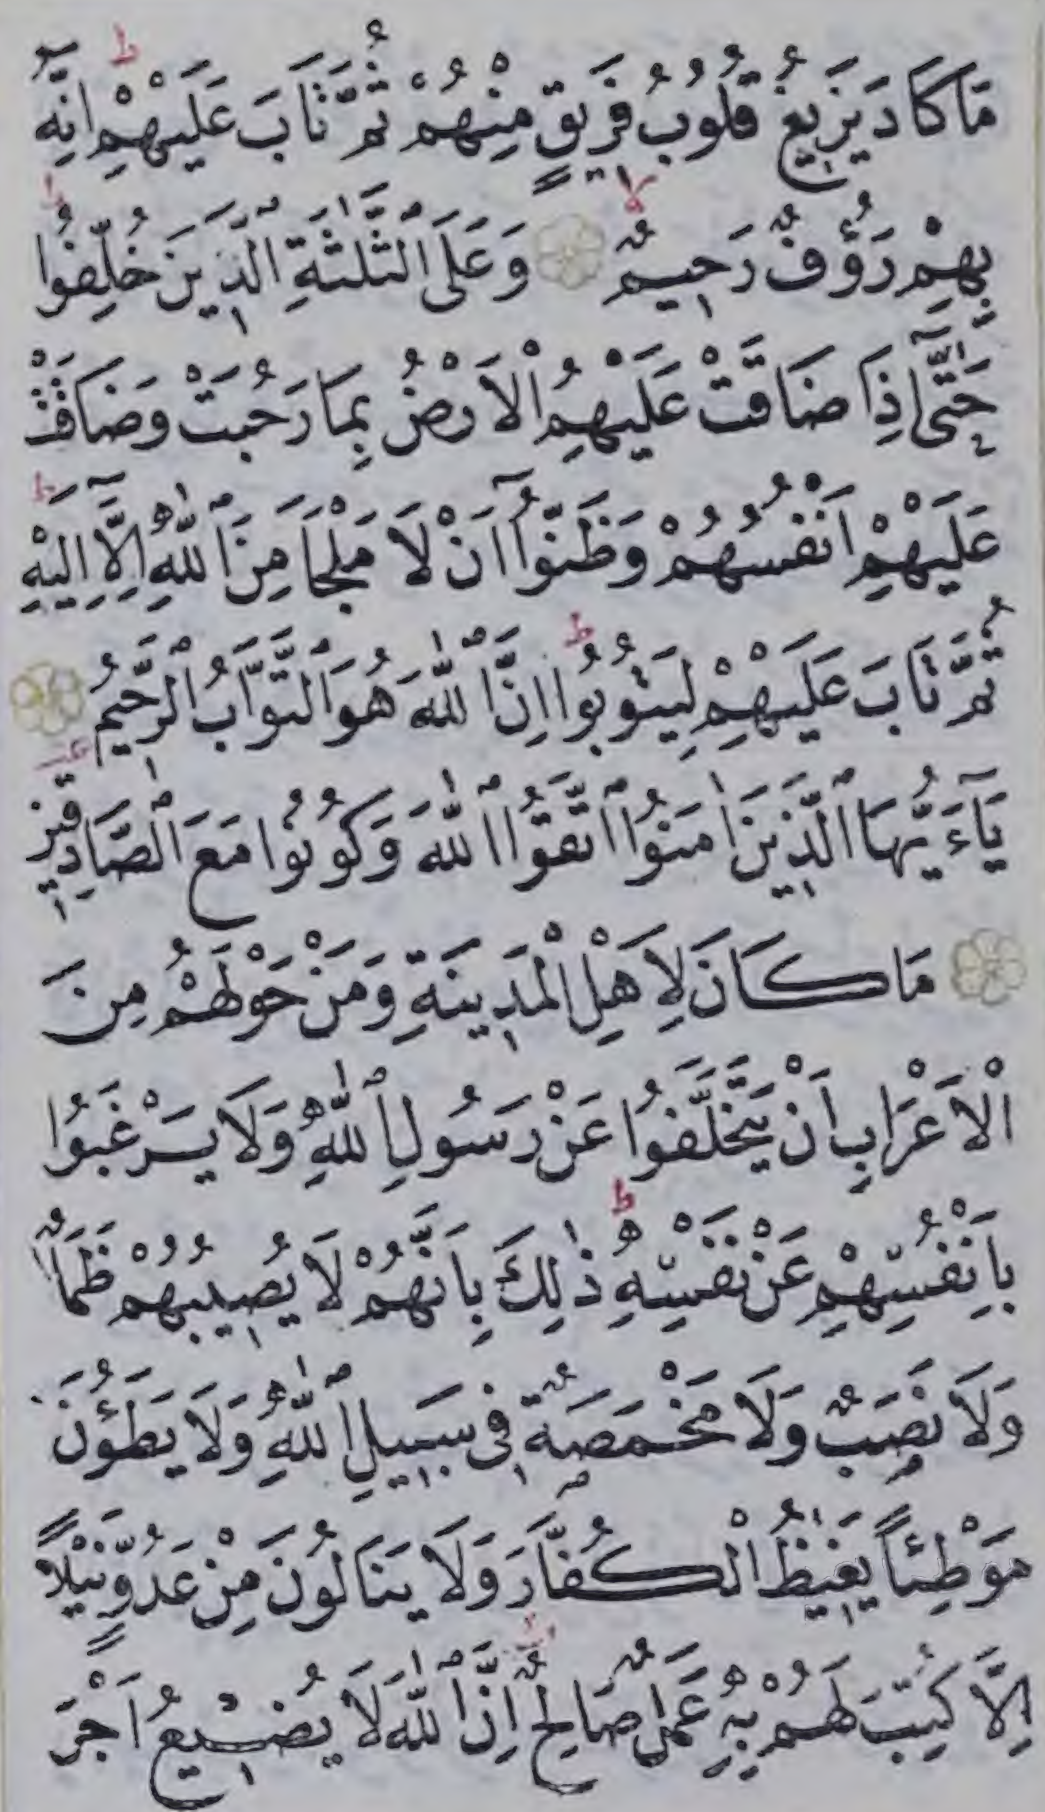 مَا كَادَ يَزِيغُ قُلُوبُ فَرِيقٍ مِنْهُمْ ثُمَّ تَابَ عَلَيْهِمْ اِنَّهُ
بِهِمْ رَؤُفٌ رَحِيمٌ وَعَلَى ٱلثَّلٰثَةِ ٱلَّذِينَ خُلِّفُوا
حَتّٰٓى اِذَا ضَاقَتْ عَلَيْهِمُ الْاَرْضُ بِمَا رَحُبَتْ وَضَاقَتْ
عَلَيْهِمْ اَنْفُسُهُمْ وَظَنُّٓوا اَنْ لَا مَلْجَاَ مِنَ ٱللّٰهِ اِلَّٓا اِلَيْهِ
ثُمَّ تَابَ عَلَيْهِمْ لِيَتُوبُوا اِنَّ ٱللّٰهَ هُوَ ٱلتَّوَّابُ ٱلرَّحِيمُ
يَٓاءَيُّهَا ٱلَّذِينَ اٰمَنُوا ٱتَّقُوا ٱللّٰهَ وَكُونُوا مَعَ ٱلصَّادِقِينَ
مَا كَانَ لِاَهْلِ الْمَدِينَةِ وَمَنْ حَوْلَهُمْ مِنَ
الْاَعْرَابِ اَنْ يَتَخَلَّفُوا عَنْ رَسُولِ ٱللّٰهِ وَلَا يَرْغَبُوا
بِاَنْفُسِهِمْ عَنْ نَفْسِهِ ذٰلِكَ بِاَنَّهُمْ لَا يُصِيبُهُمْ ظَمَاٌ
وَلَا نَصَبٌ وَلَا مَخْمَصَةٌ فِى سَبِيلِ ٱللّٰهِ وَلَا يَطَؤُنَ
مَوْطِئًا يَغِيظُ الْكُفَّارَ وَلَا يَنَالُونَ مِنْ عَدُوٍّ نَيْلًا
اِلَّا كُتِبَ لَهُمْ بِهِ عَمَلٌ صَالِحٌ اِنَّ ٱللّٰهَ لَا يُضِيعُ اَجْرَ